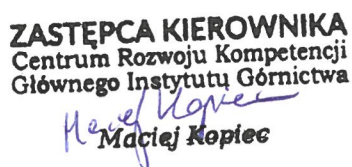 ZASTĘPCA KIEROWNIKA
Centrum Rozwoju Kompetencji
Głównego Instytutu Górnictwa
Maciej Kopiec